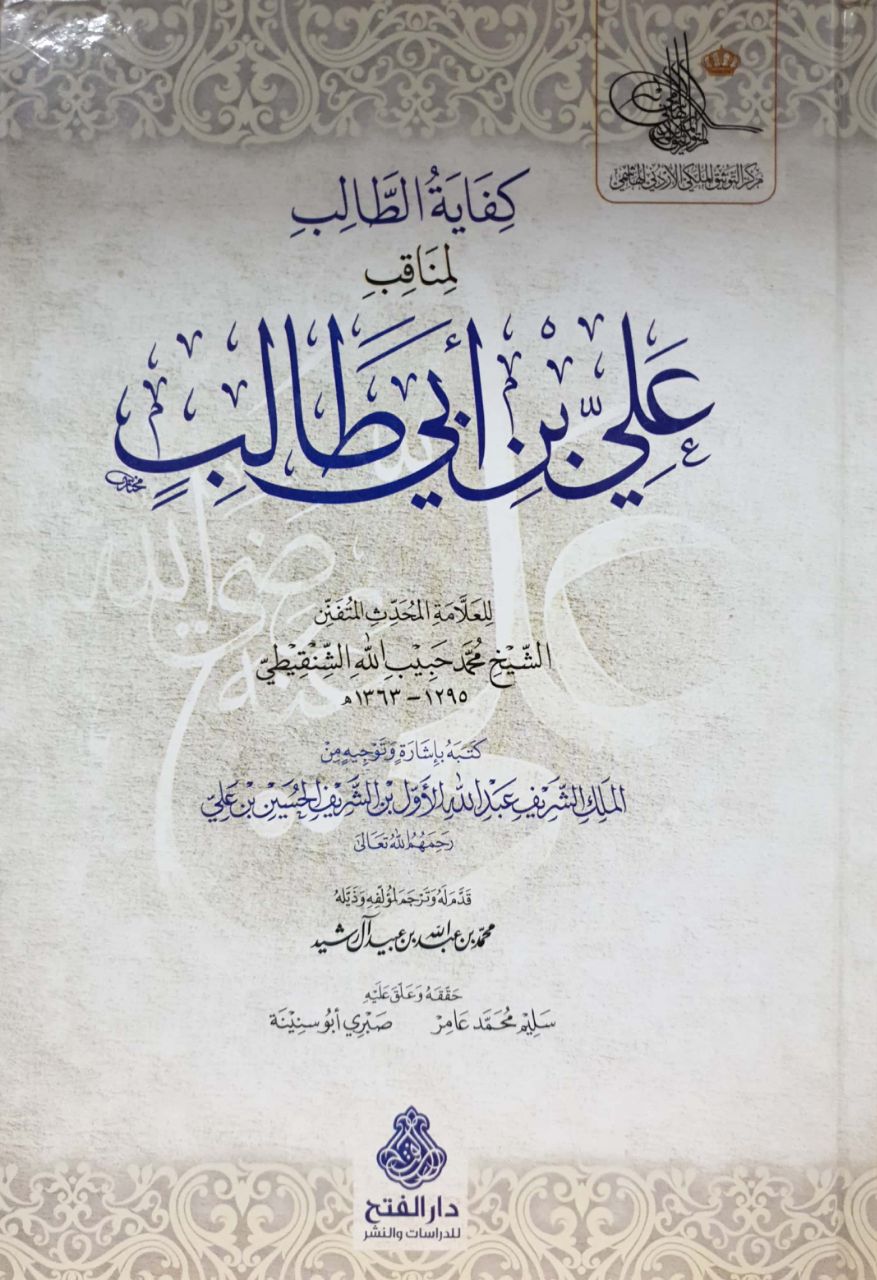 مركز التوثيق الملكي الأردني الهاشمي
كِفَايَةُ الطَّالِبِ
لِمنَاقِبِ
عَلِيِّ بْنِ أَبِي طَالِبٍ
للعَلَّامَةِ المُحَدِّثِ المُتَفَنِّن
الشَّيْخِ مُحَمَّد حَبِيْبِ اللهِ الشِّنْقِيْطِيّ
١٢٩٥ – ١٣٦٣هـ
كَتَبَهُ بِإِشَارَةٍ وَتَوْجِيهٍ مِنْ
المَلِكِ الشَّرِيْفِ عَبْدِ اللهِ الأَوَّلِ بْنِ الشَّرِيْفِ الحُسَيْنِ بْنِ عَلِيّ
رَحِمَهُمُ اللهُ تَعَالَى
قَدَّمَ لَهُ وَتَرْجَمَ لمُؤَلِّفِهِ وَذَيَّلَهُ
محمّد بن عبد الله بن عبيد آل رشيد
حَقَّقَهُ وَعَلَّقَ عَلَيْهِ
سَلِيْم مُحَمَّد عَامِرْ صَبْرِي أَبُو سنِيْنَة
دار الفتح
للدراسات والنشر